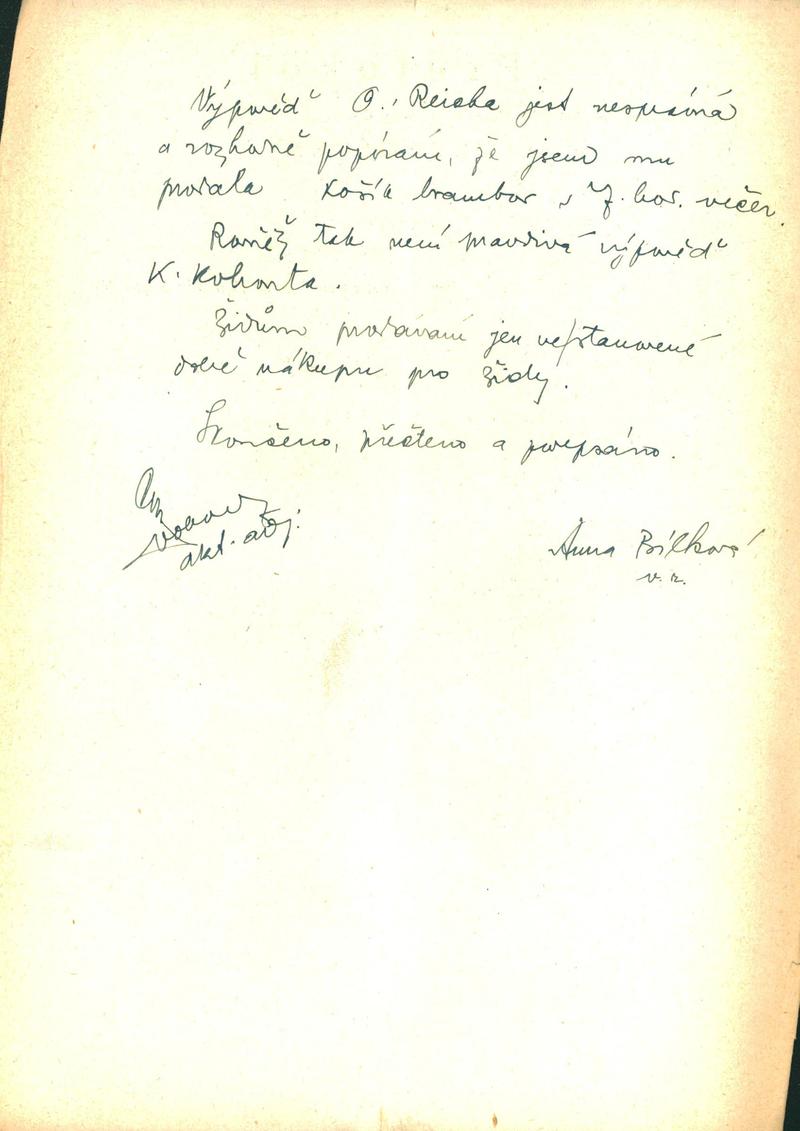 Výpověď O. Reicha jest nesprávná
a rozhodně popírám, že jsem mu
prodala košík brambor v 7. hod. večer.
Rovněž tak není pravdivá výpověď
K. Kohouta.
Židům prodávám jen ve stanovené
době nákupu pro židy.
Skončeno, přečteno a podepsáno.
akt. adj.
Anna Bílková
v. r.